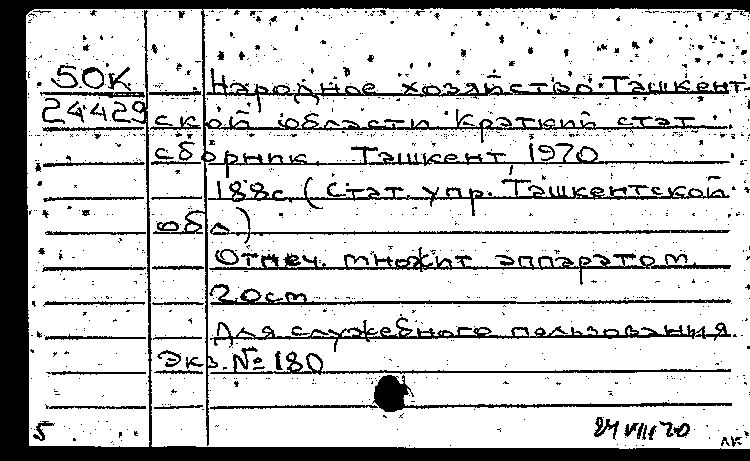 50К Народное хозяйство Ташкент-
24429 ской области. Краткий стат.
сборник. Ташкент, 1970
188с. (Стат. упр. Ташкентской
обл.)
Отпеч. множит. аппаратом.
20 см
Для служебного пользования
Экз. № 180
5 24 VIII 70 лк